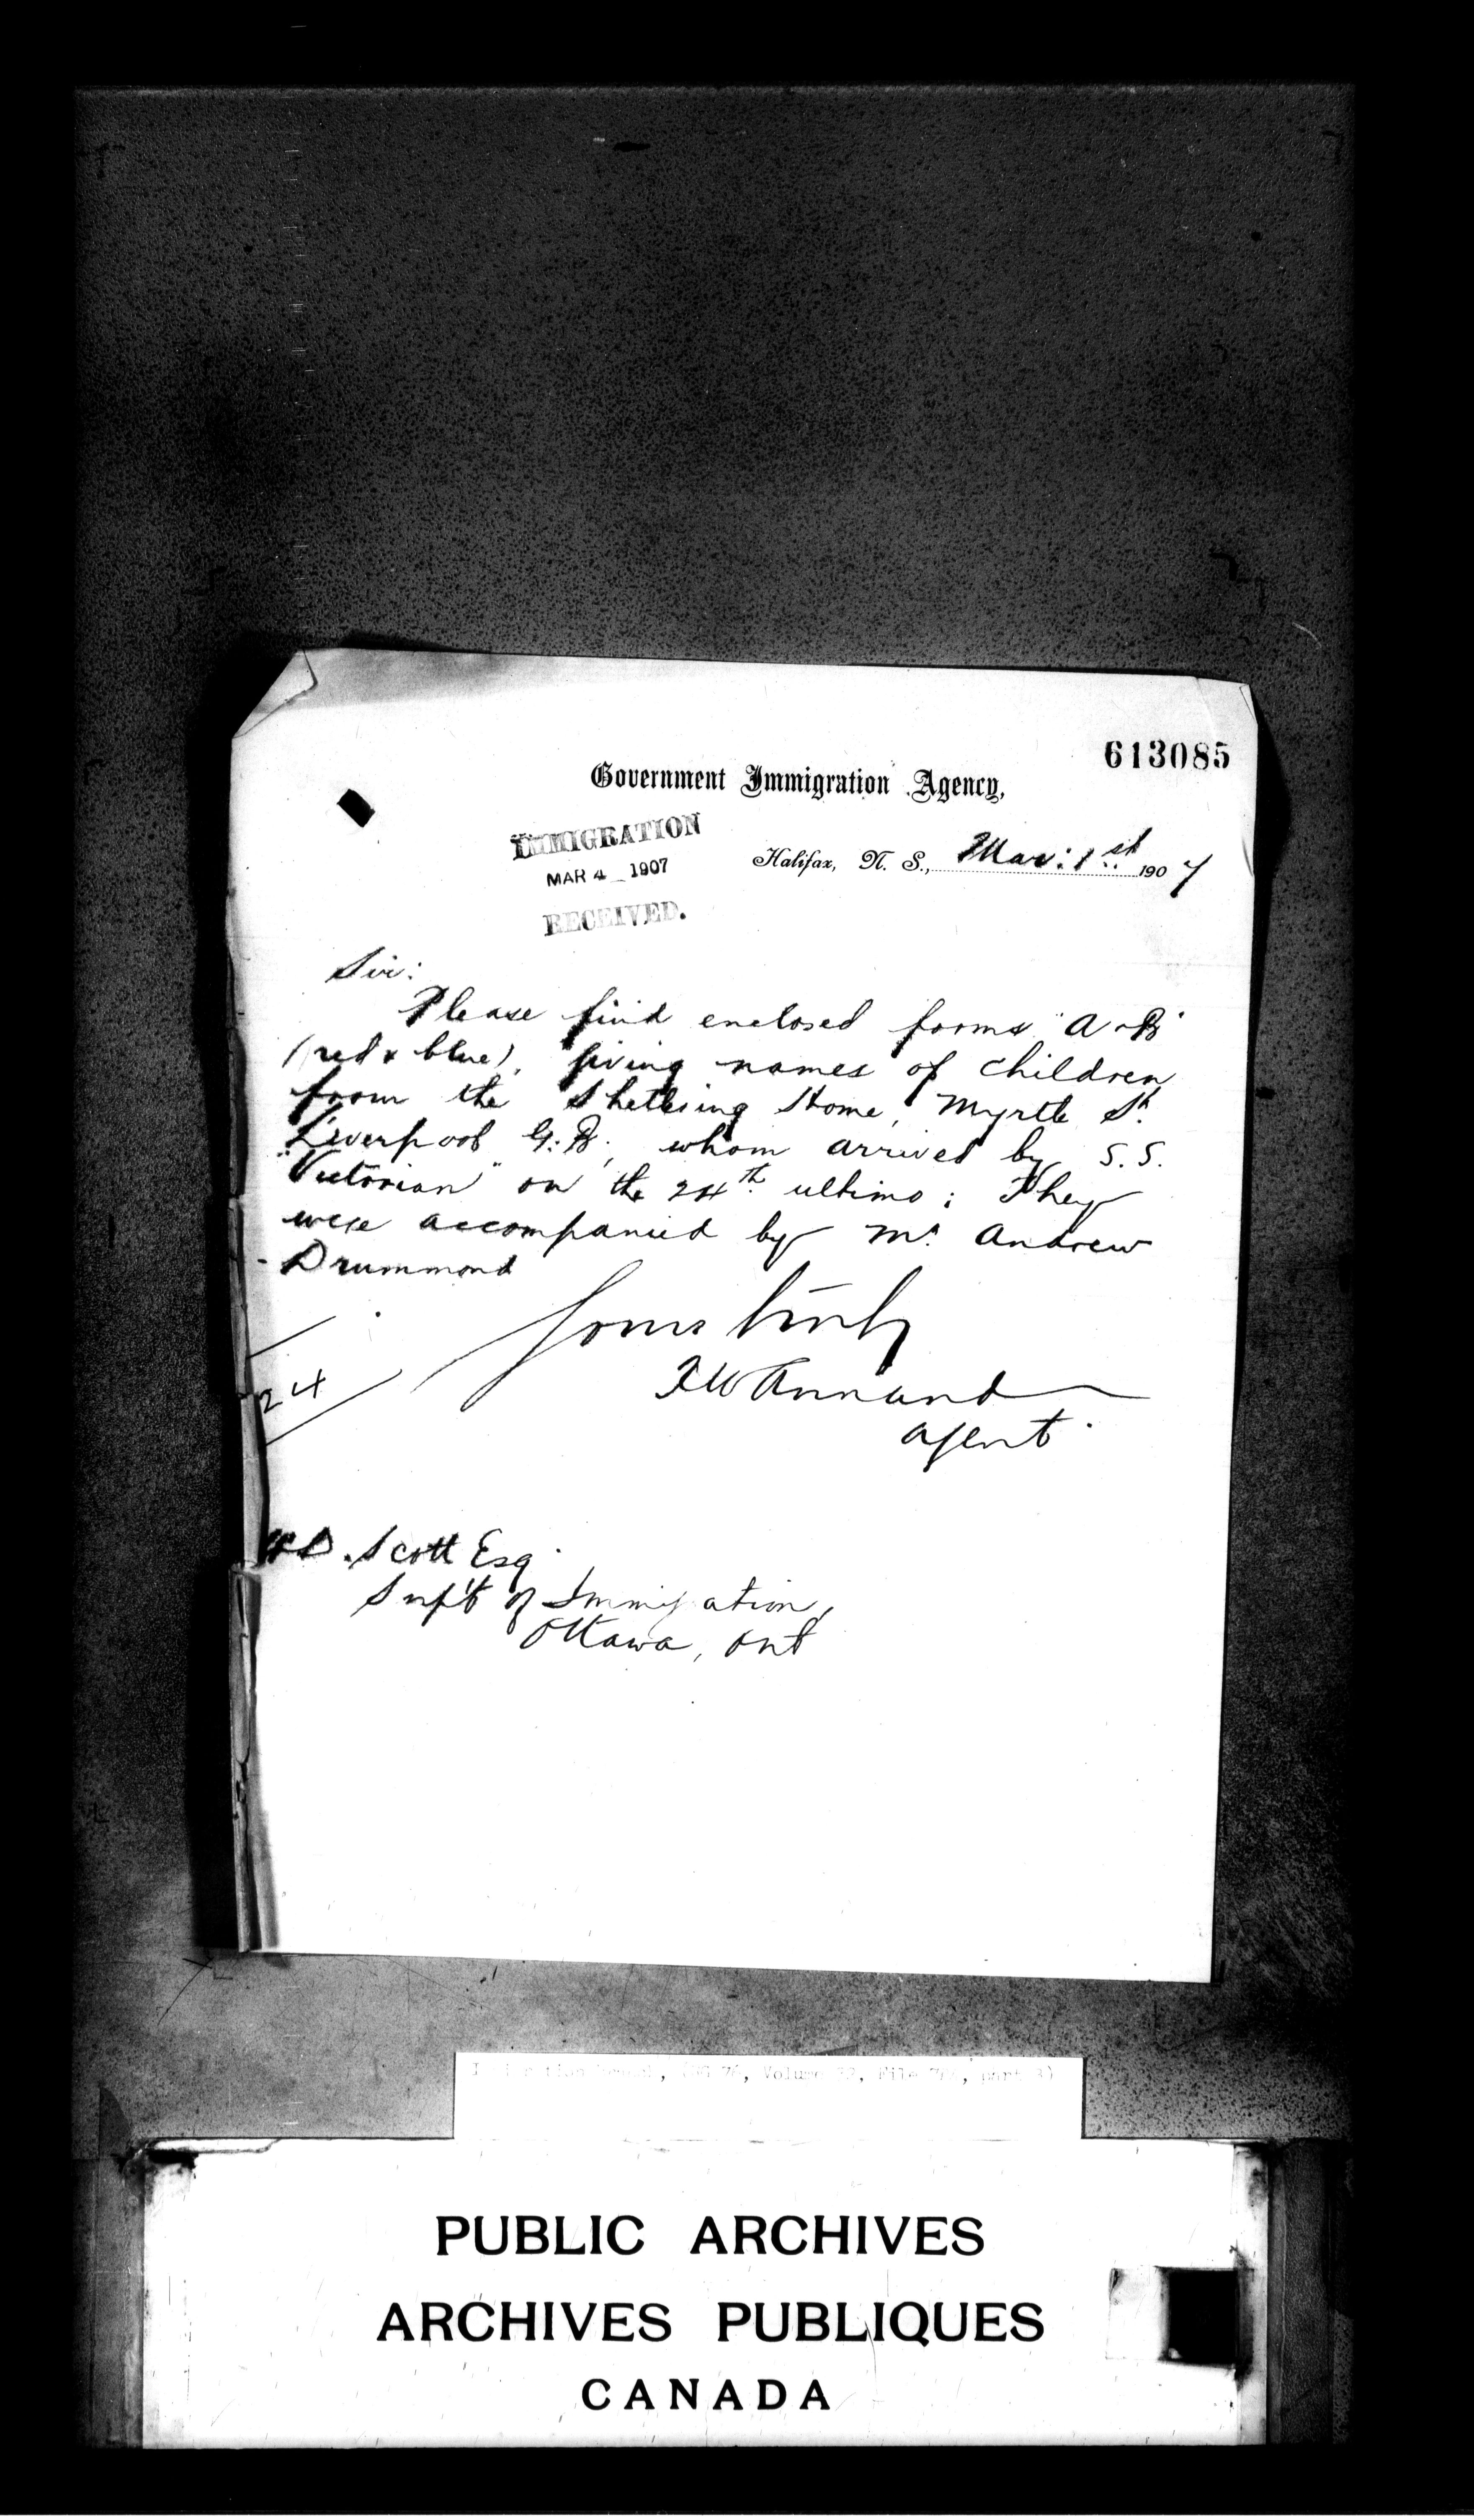 613085
Government Immigration Agency,
IMMIGRATION
MAR 4 1907
RECEIVED.
Halifax, N. S., Mar: 1st 1907
Sir:
Please find enclosed forms "A & B"
(red & blue), giving names of children
from the Sheltering Home, Myrtle St.
Liverpool G.B., whom arrived by S.S.
"Victorian" on the 24th ultimo; They
were accompanied by Mr. Andrew
Drummond
Yours truly
F W Annand
Agent
24
W.D. Scott Esq
Sup't of Immigration,
Ottawa, Ont
76, Volume File part 3)
PUBLIC ARCHIVES
ARCHIVES PUBLIQUES
CANADA